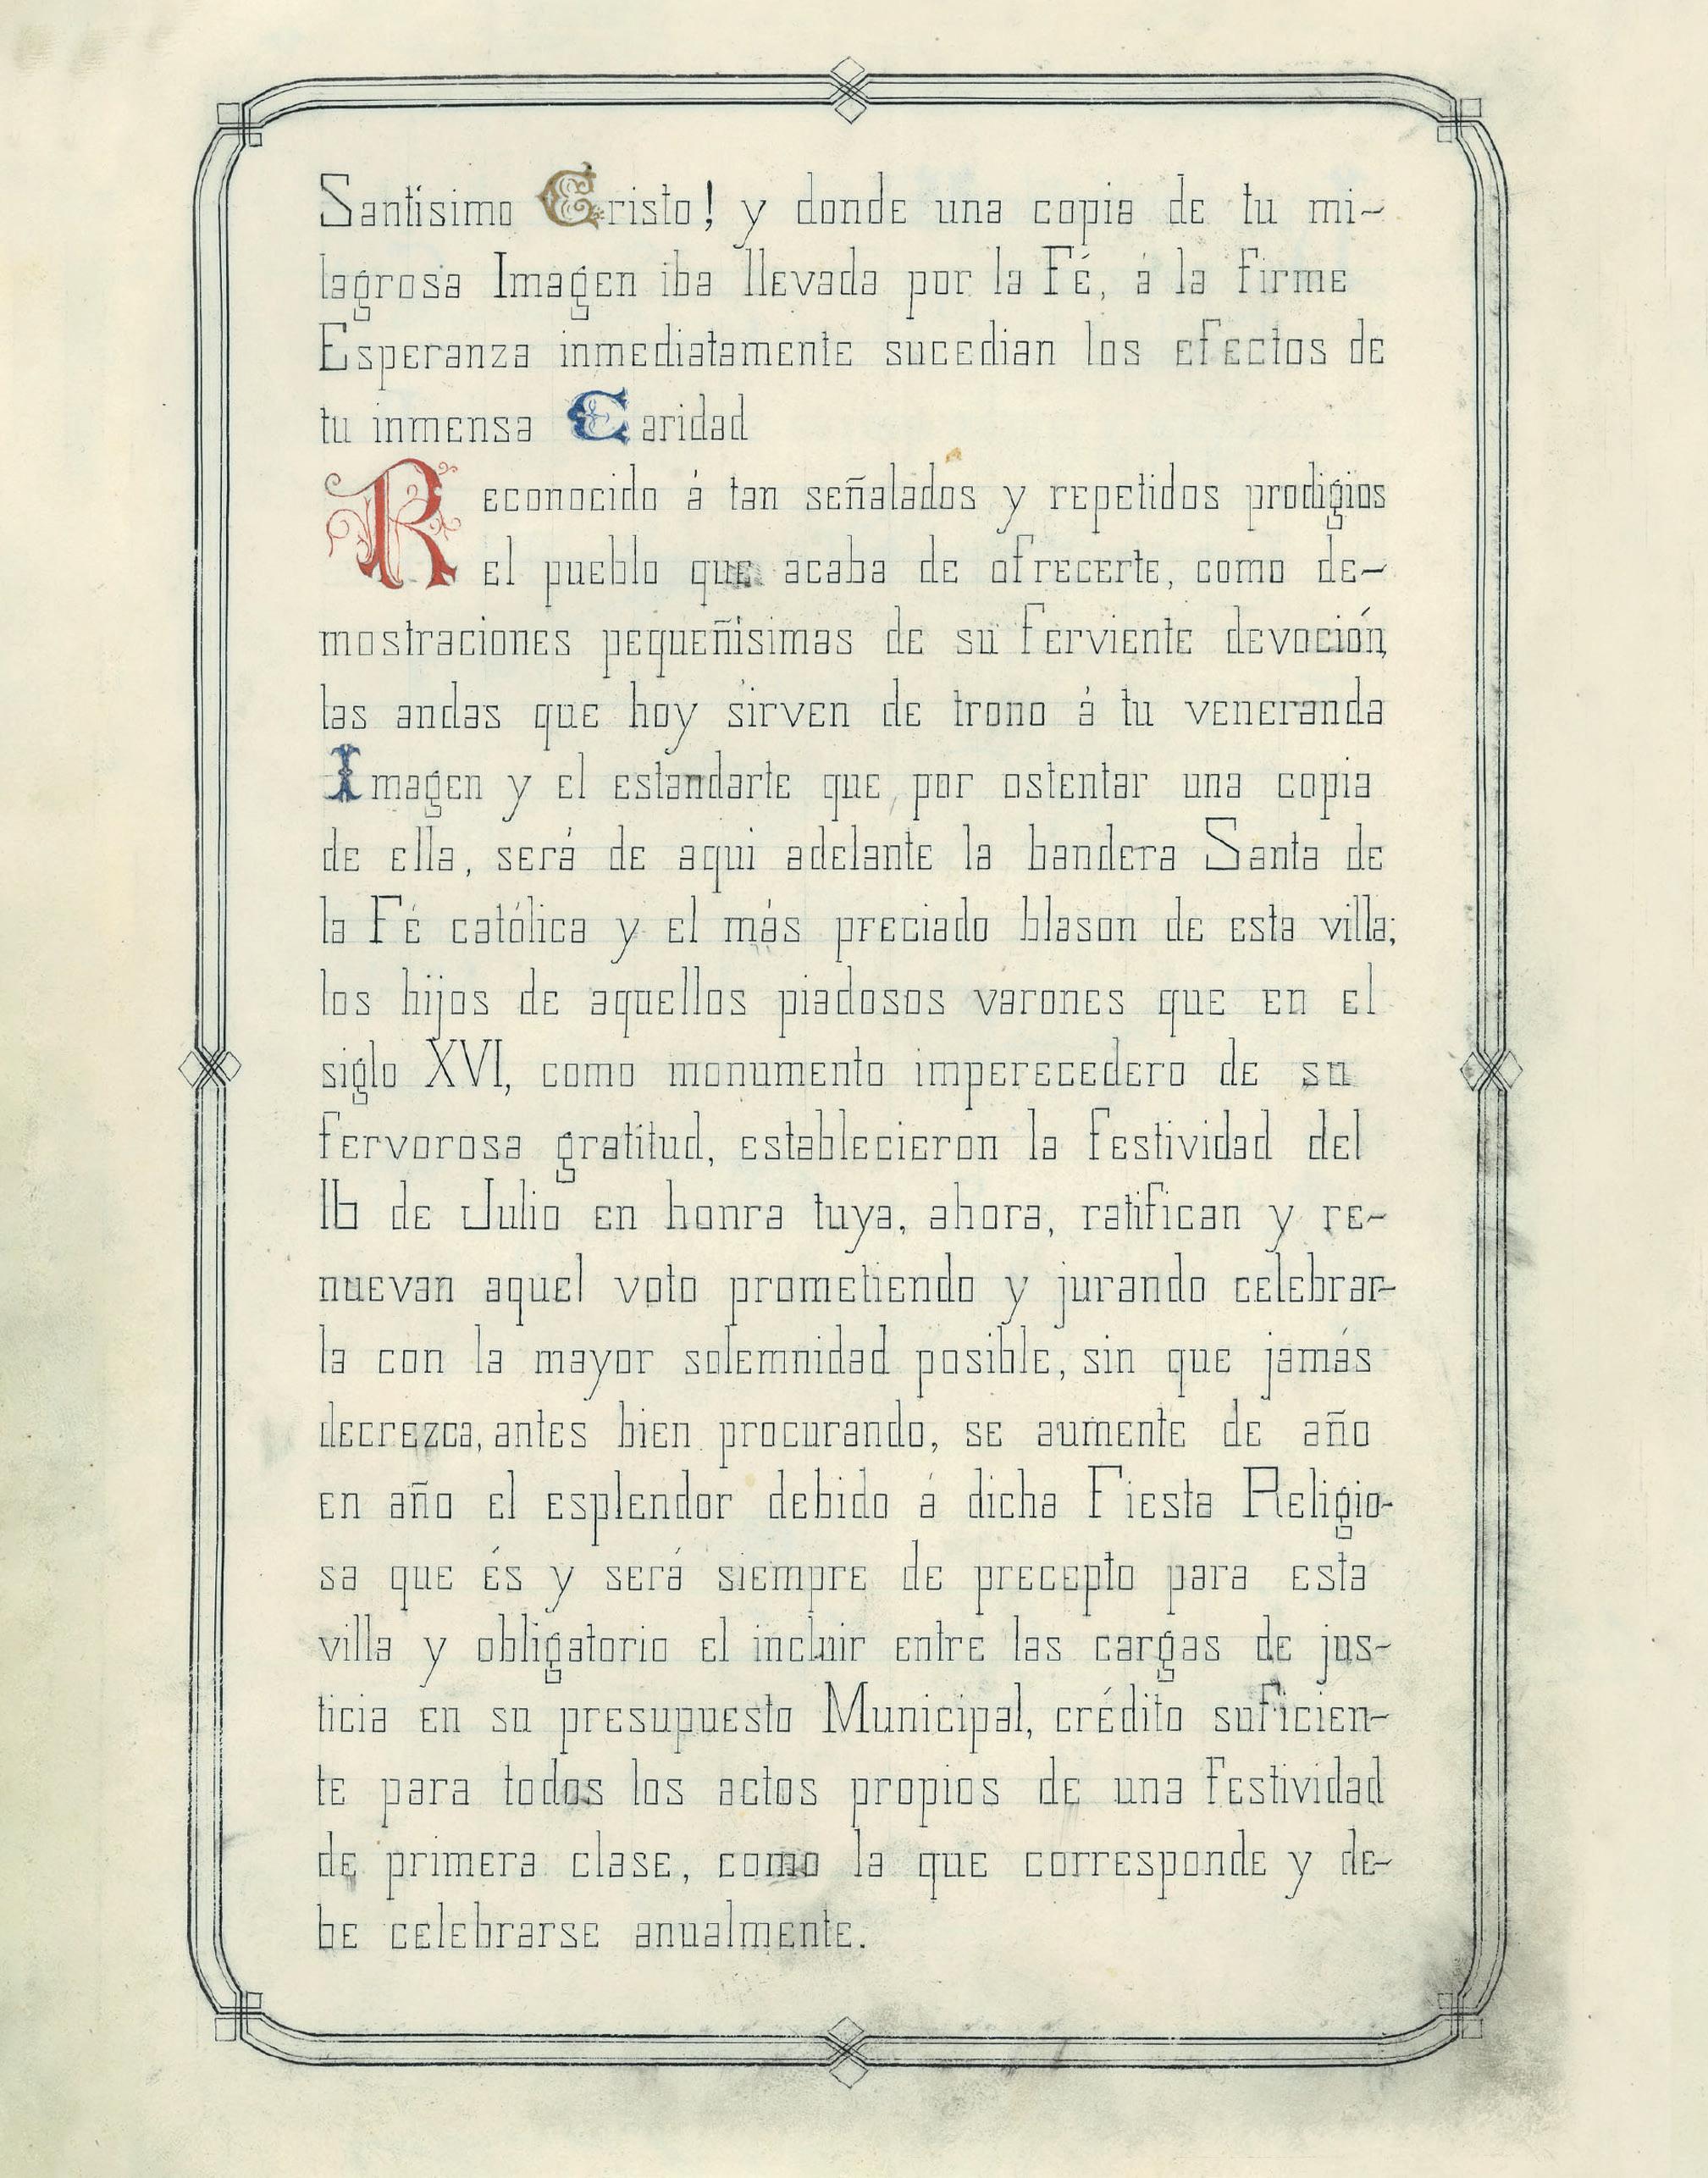 Santísimo Cristo! y donde una copia de tu mi-
lagrosa Imagen iba llevada por la Fé, á la firme
Esperanza inmediatamente sucedian los efectos de
tu inmensa Caridad
Reconocido á tan señalados y repetidos prodigios
el pueblo que acaba de ofrecerte, como de-
mostraciones pequeñísimas de su ferviente devoción,
las andas que hoy sirven de trono á tu veneranda
Imagen y el estandarte que, por ostentar una copia
de ella, será de aqui adelante la bandera Santa de
la Fé católica y el más preciado blason de esta villa;
los hijos de aquellos piadosos varones que en el
siglo XVI, como monumento imperecedero de su
fervorosa gratitud, establecieron la festividad del
16 de Julio en honra tuya, ahora, ratifican y re-
nuevan aquel voto prometiendo y jurando celebrar-
la con la mayor solemnidad posible, sin que jamás
decrezca, antes bien procurando, se aumente de año
en año el esplendor debido á dicha Fiesta Religio-
sa que és y será siempre de precepto para esta
villa y obligatorio el incluir entre las cargas de jus-
ticia en su presupuesto Municipal, crédito suficien-
te para todos los actos propios de una festividad
de primera clase, como la que corresponde y de-
be celebrarse anualmente.